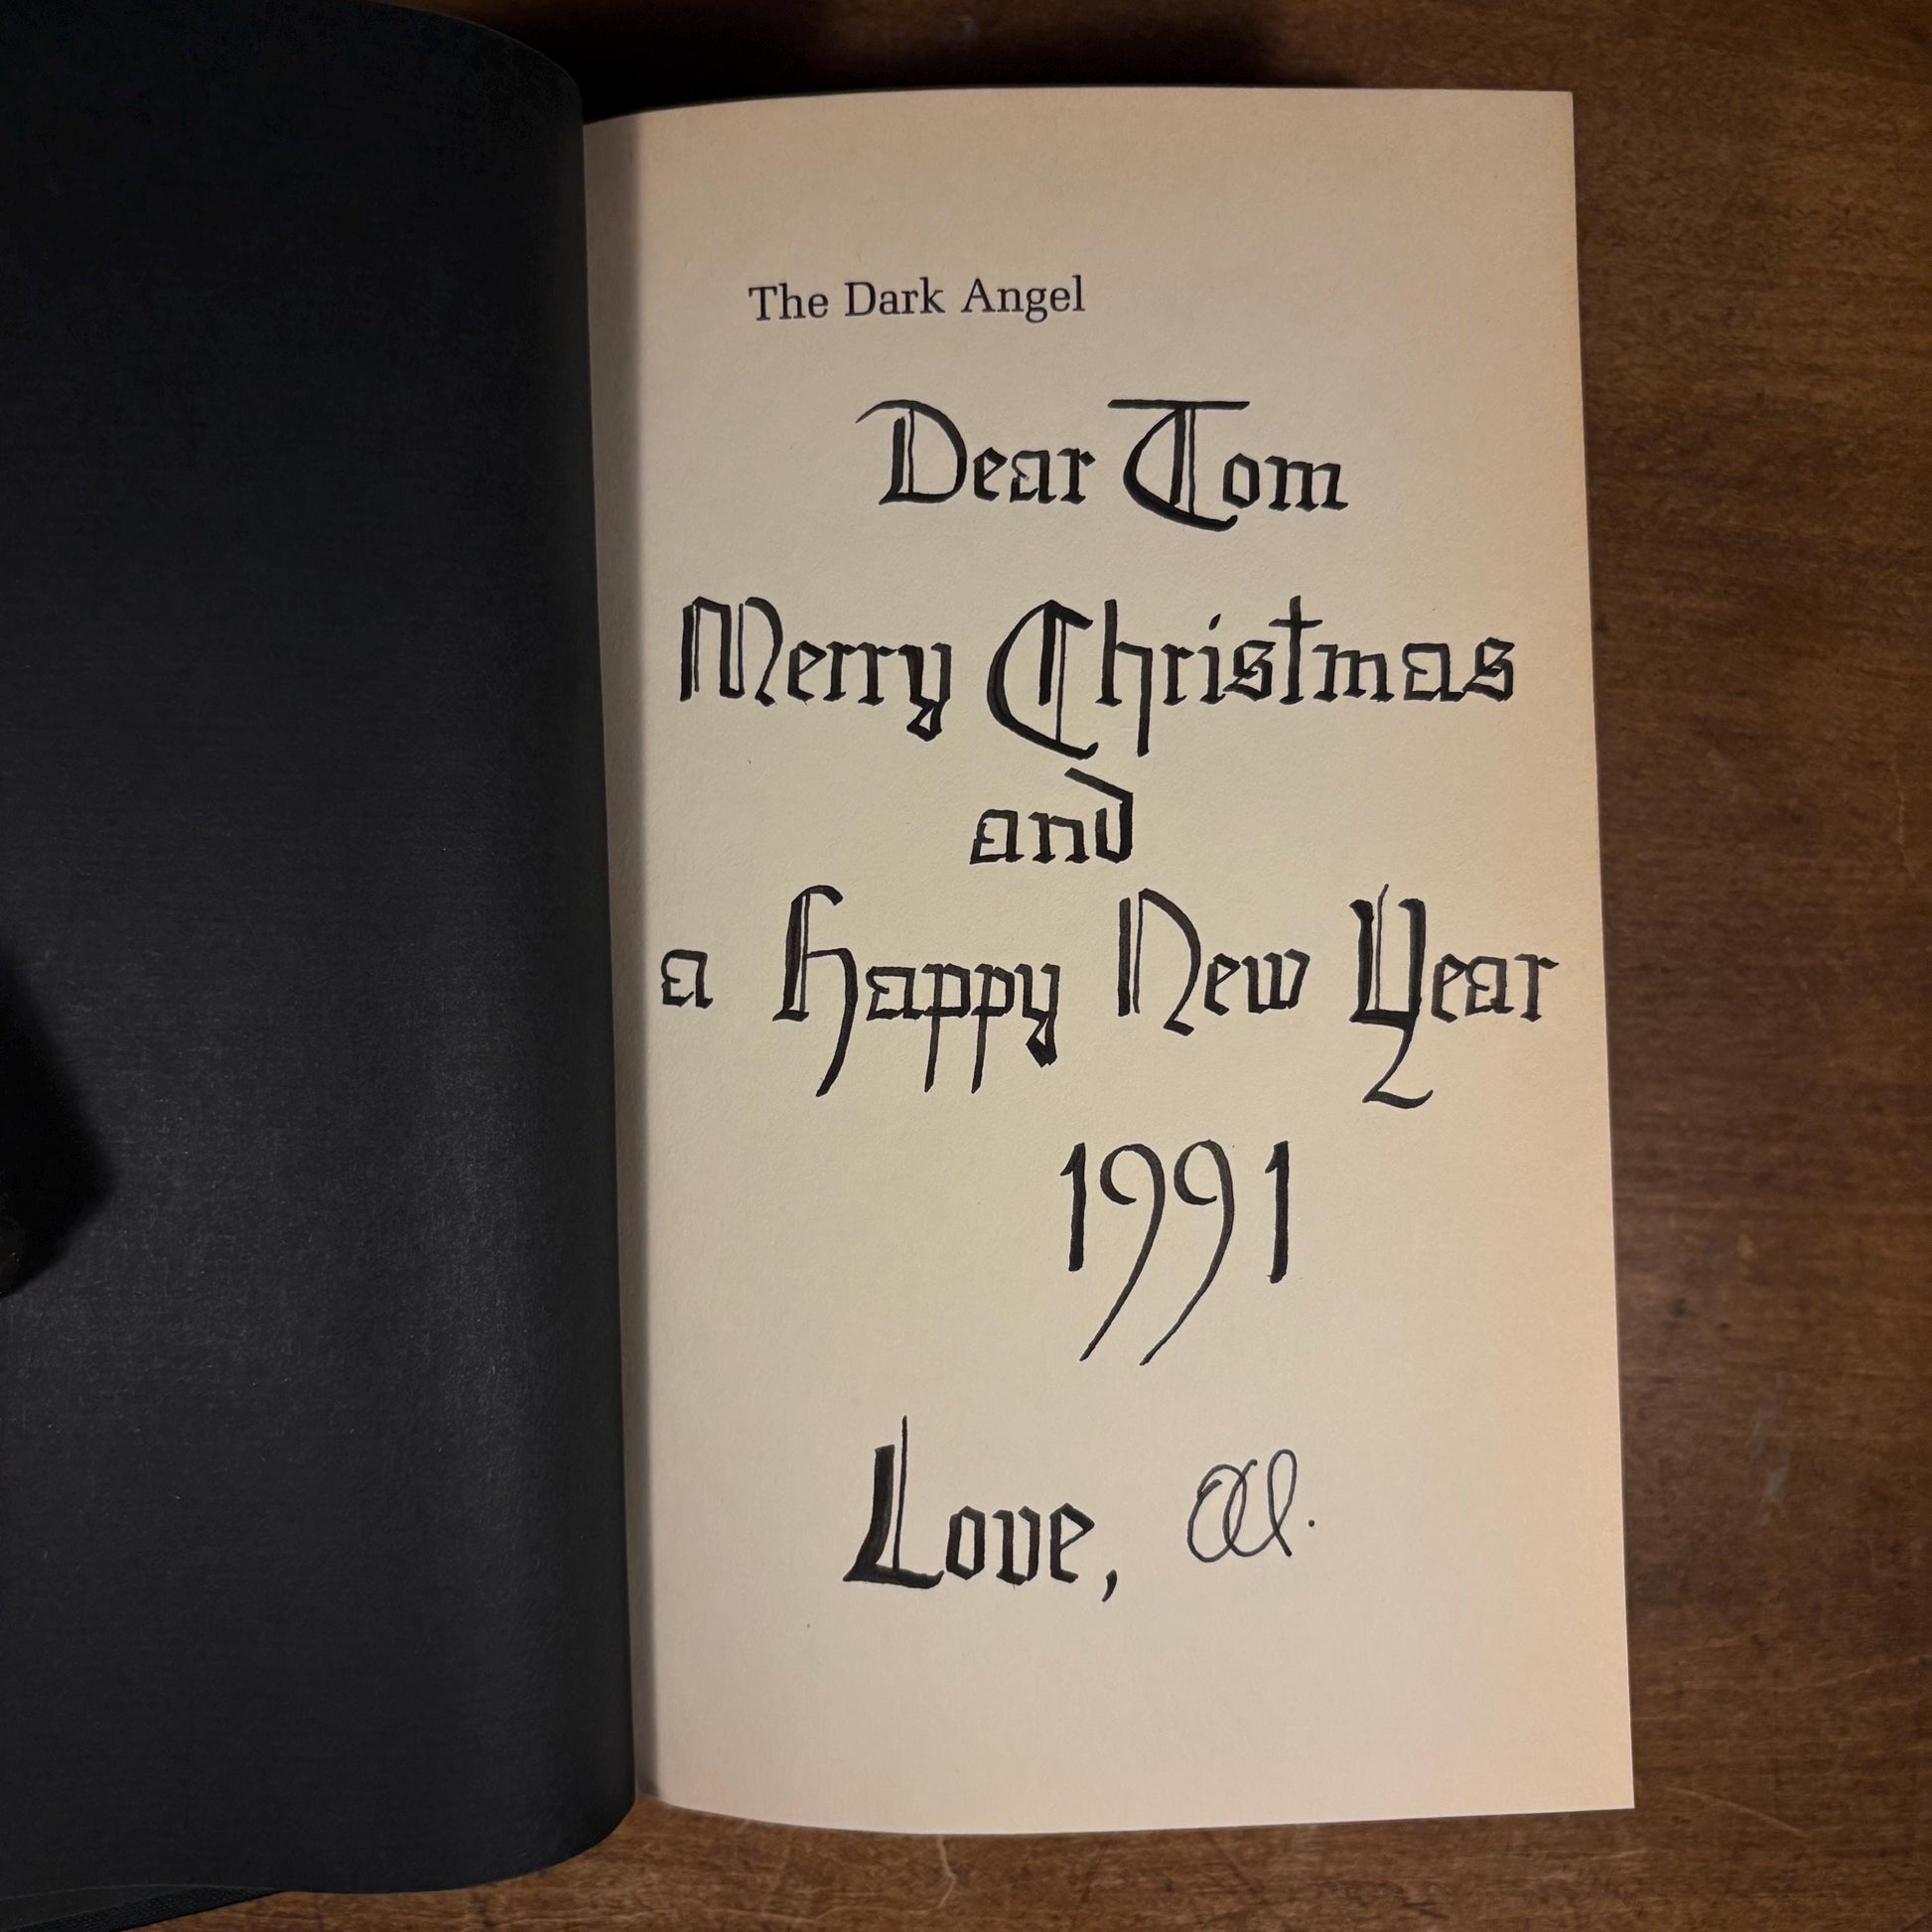 The Dark Angel
Dear Tom
Merry Christmas
and
a Happy New Year
1991
Love, Al.